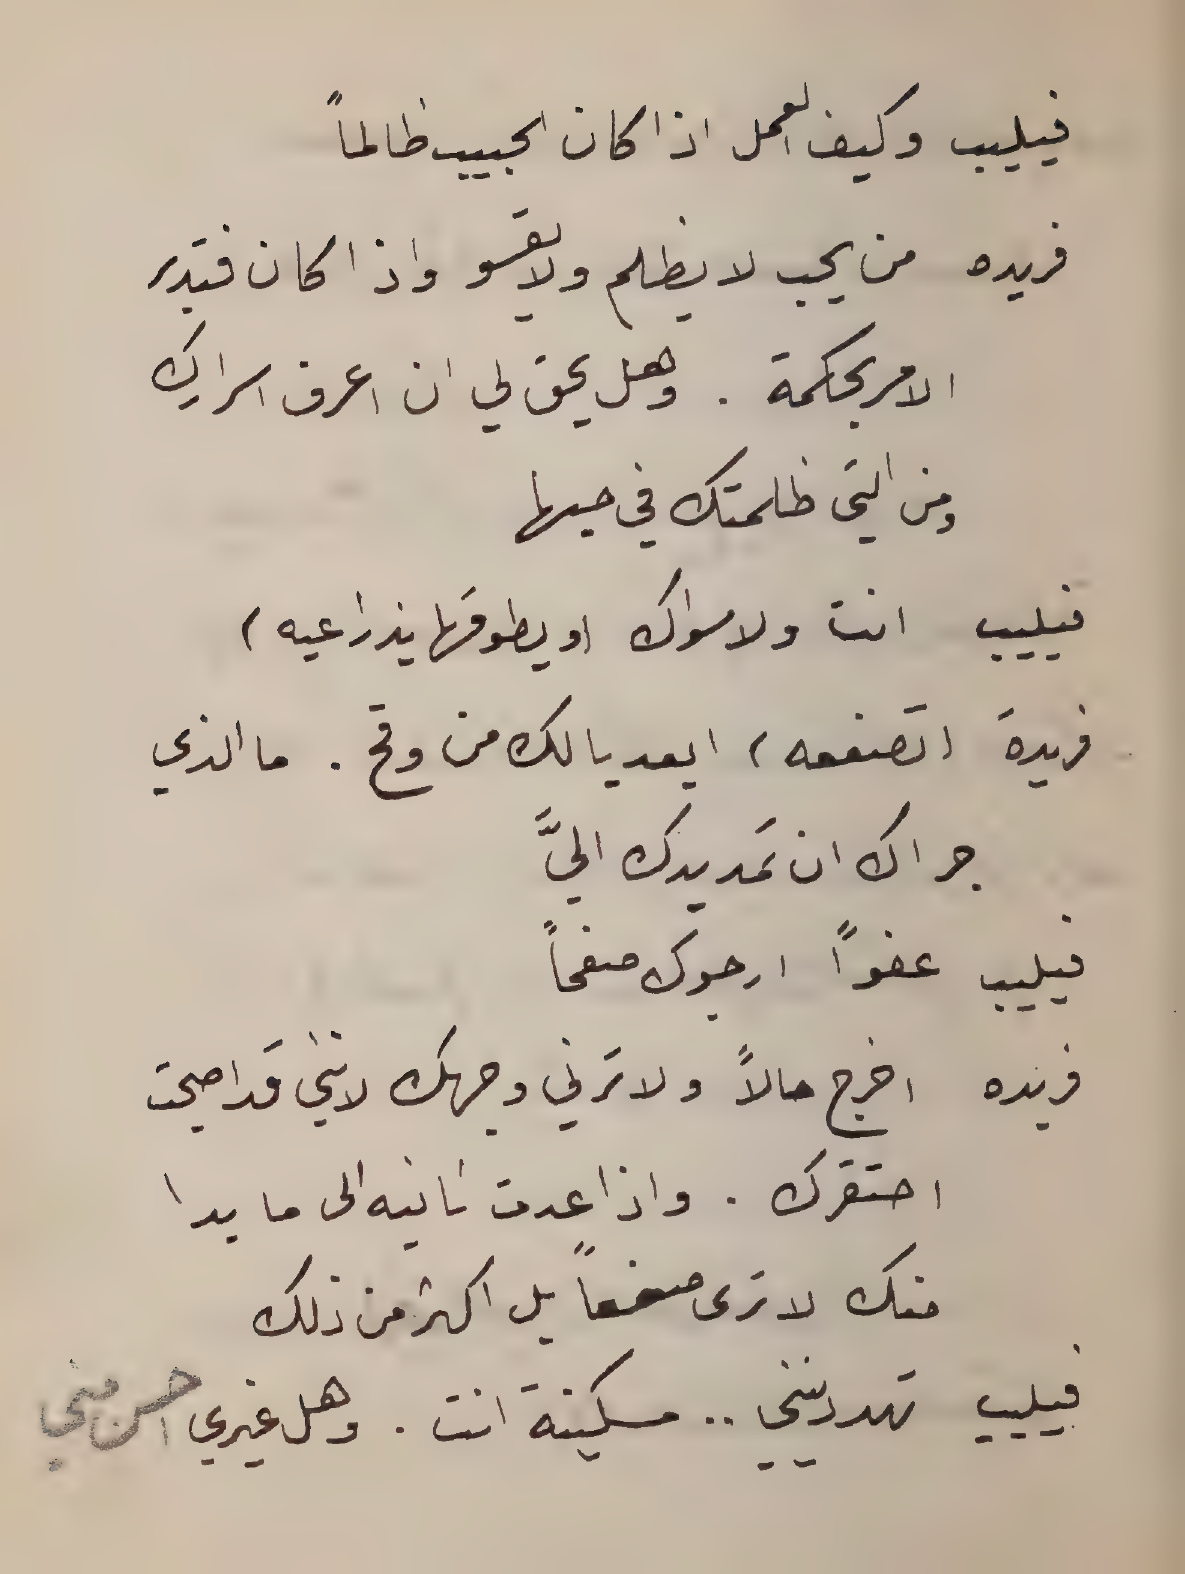 فيليب وكيف العمل اذا كان الحبيب ظالماً
فريده من يحب لا يظلم ولا يقسو واذا كان فتدبر
الامر بحكمة . وهل يحق لي ان اعرف اسرارك
ومن التي ظلمتك في حبها
فيليب انت ولا سواك (ويطوقها بذراعيه)
فريدة (تصفعه) ابعد يا لك من وقح . ما الذي
جراك ان تمد يدك اليَّ
فيليب عفواً ارجوك صفحاً
فريده اخرج حالاً ولا ترني وجهك لانني قد اصبحت
احتقرك . واذا عدت ثانيه الى ما بدا
منك لا ترى صفعاً بل اكثر من ذلك
فيليب تهددينني .. مسكينة انت . وهل غيري احسن مني